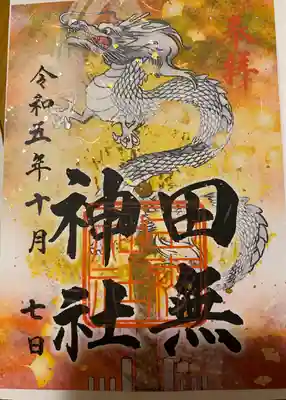 奉拝
田無
神社
令和五年十月
七日